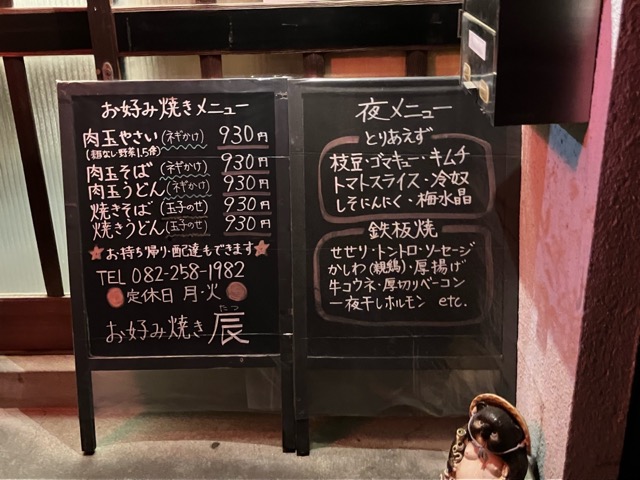 お好み焼きメニュー
肉玉やさい(ネギかけ) 930円
(麺なし野菜1.5倍)
肉玉そば(ネギかけ) 930円
肉玉うどん(ネギかけ) 930円
焼きそば(玉子のせ) 930円
焼きうどん(玉子のせ) 930円
★お持ち帰り・配達もできます★
TEL 082-258-1982
定休日 月・火
たつ
お好み焼き 辰
夜メニュー
とりあえず
枝豆・ゴマキュー・キムチ
トマトスライス・冷奴
しそにんにく・梅水晶
鉄板焼
せせり・トントロ・ソーセージ
かしわ(親鶏)・厚揚げ
牛コウネ・厚切りベーコン
一夜干しホルモン etc.